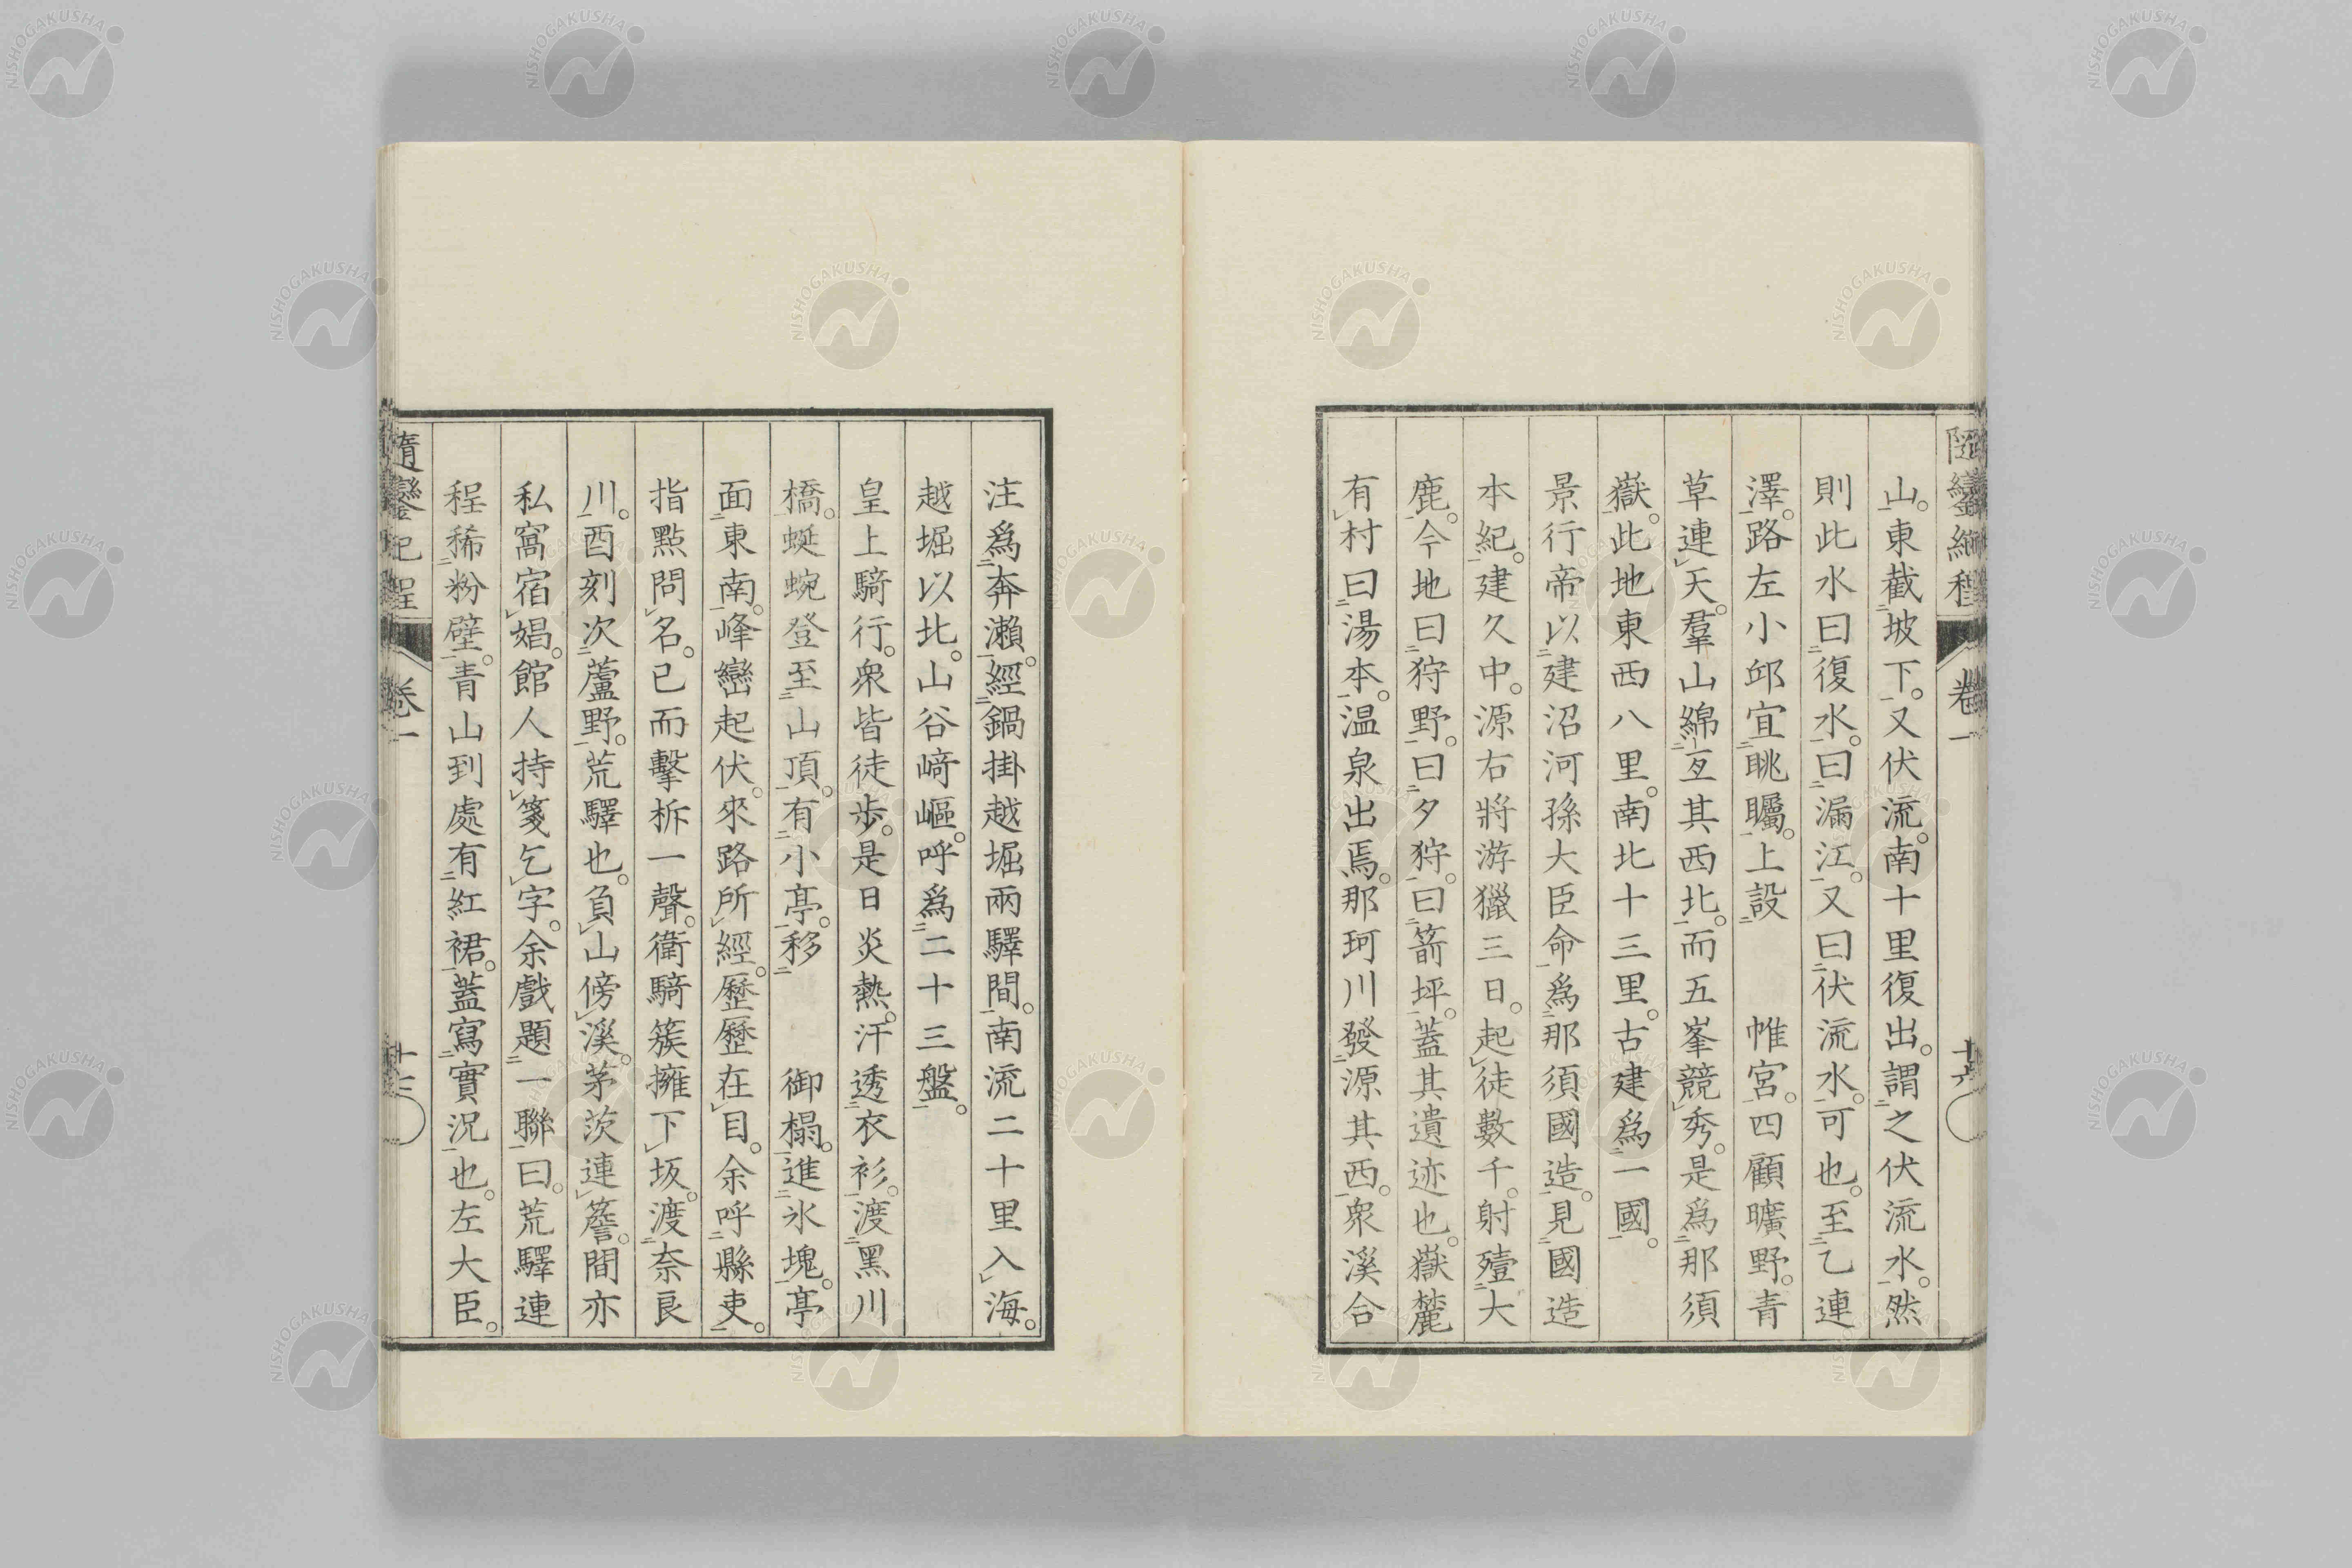 山。東截坡下。又伏流。南十里復出。謂之伏流水。然
則此水曰復水。曰漏江。又曰伏流水。可也。至乙連
澤。路左小邱宜眺矚。上設　　帷宮。四顧曠野。青
草連天。羣山綿亙其西北。而五峯競秀。是爲那須
嶽。此地東西八里。南北十三里。古建爲一國。
景行帝以建沼河孫大臣命爲那須國造。見國造
本紀。建久中。源右將游獵三日。起徒數千。射殪大
鹿。今地曰狩野。曰夕狩。曰箭坪。蓋其遺迹也。嶽麓
有村曰湯本。温泉出焉。那珂川發源其西。衆溪合
卷一
注爲奔瀨。經鍋掛越堀兩驛間。南流二十里入海。
越堀以北。山谷﨑嶇。呼爲二十三盤。
皇上騎行。衆皆徒歩。是日炎熱。汗透衣衫。渡黑川
橋。蜒蜿登至山頂。有小亭。移　　御榻。進氷塊。亭
面東南。峰巒起伏。來路所經。歷歷在目。余呼縣吏。
指點問名。已而擊柝一聲。衛騎簇擁下坂。渡奈良
川。酉刻次蘆野。荒驛也。負山傍溪。茅茨連簷。間亦
私窩宿娼。館人持箋乞字。余戲題一聯曰。荒驛連
程稀粉壁。青山到處有紅裙。蓋寫實況也。左大臣。
隨鑾紀程　卷一
NISHOGAKUSHA